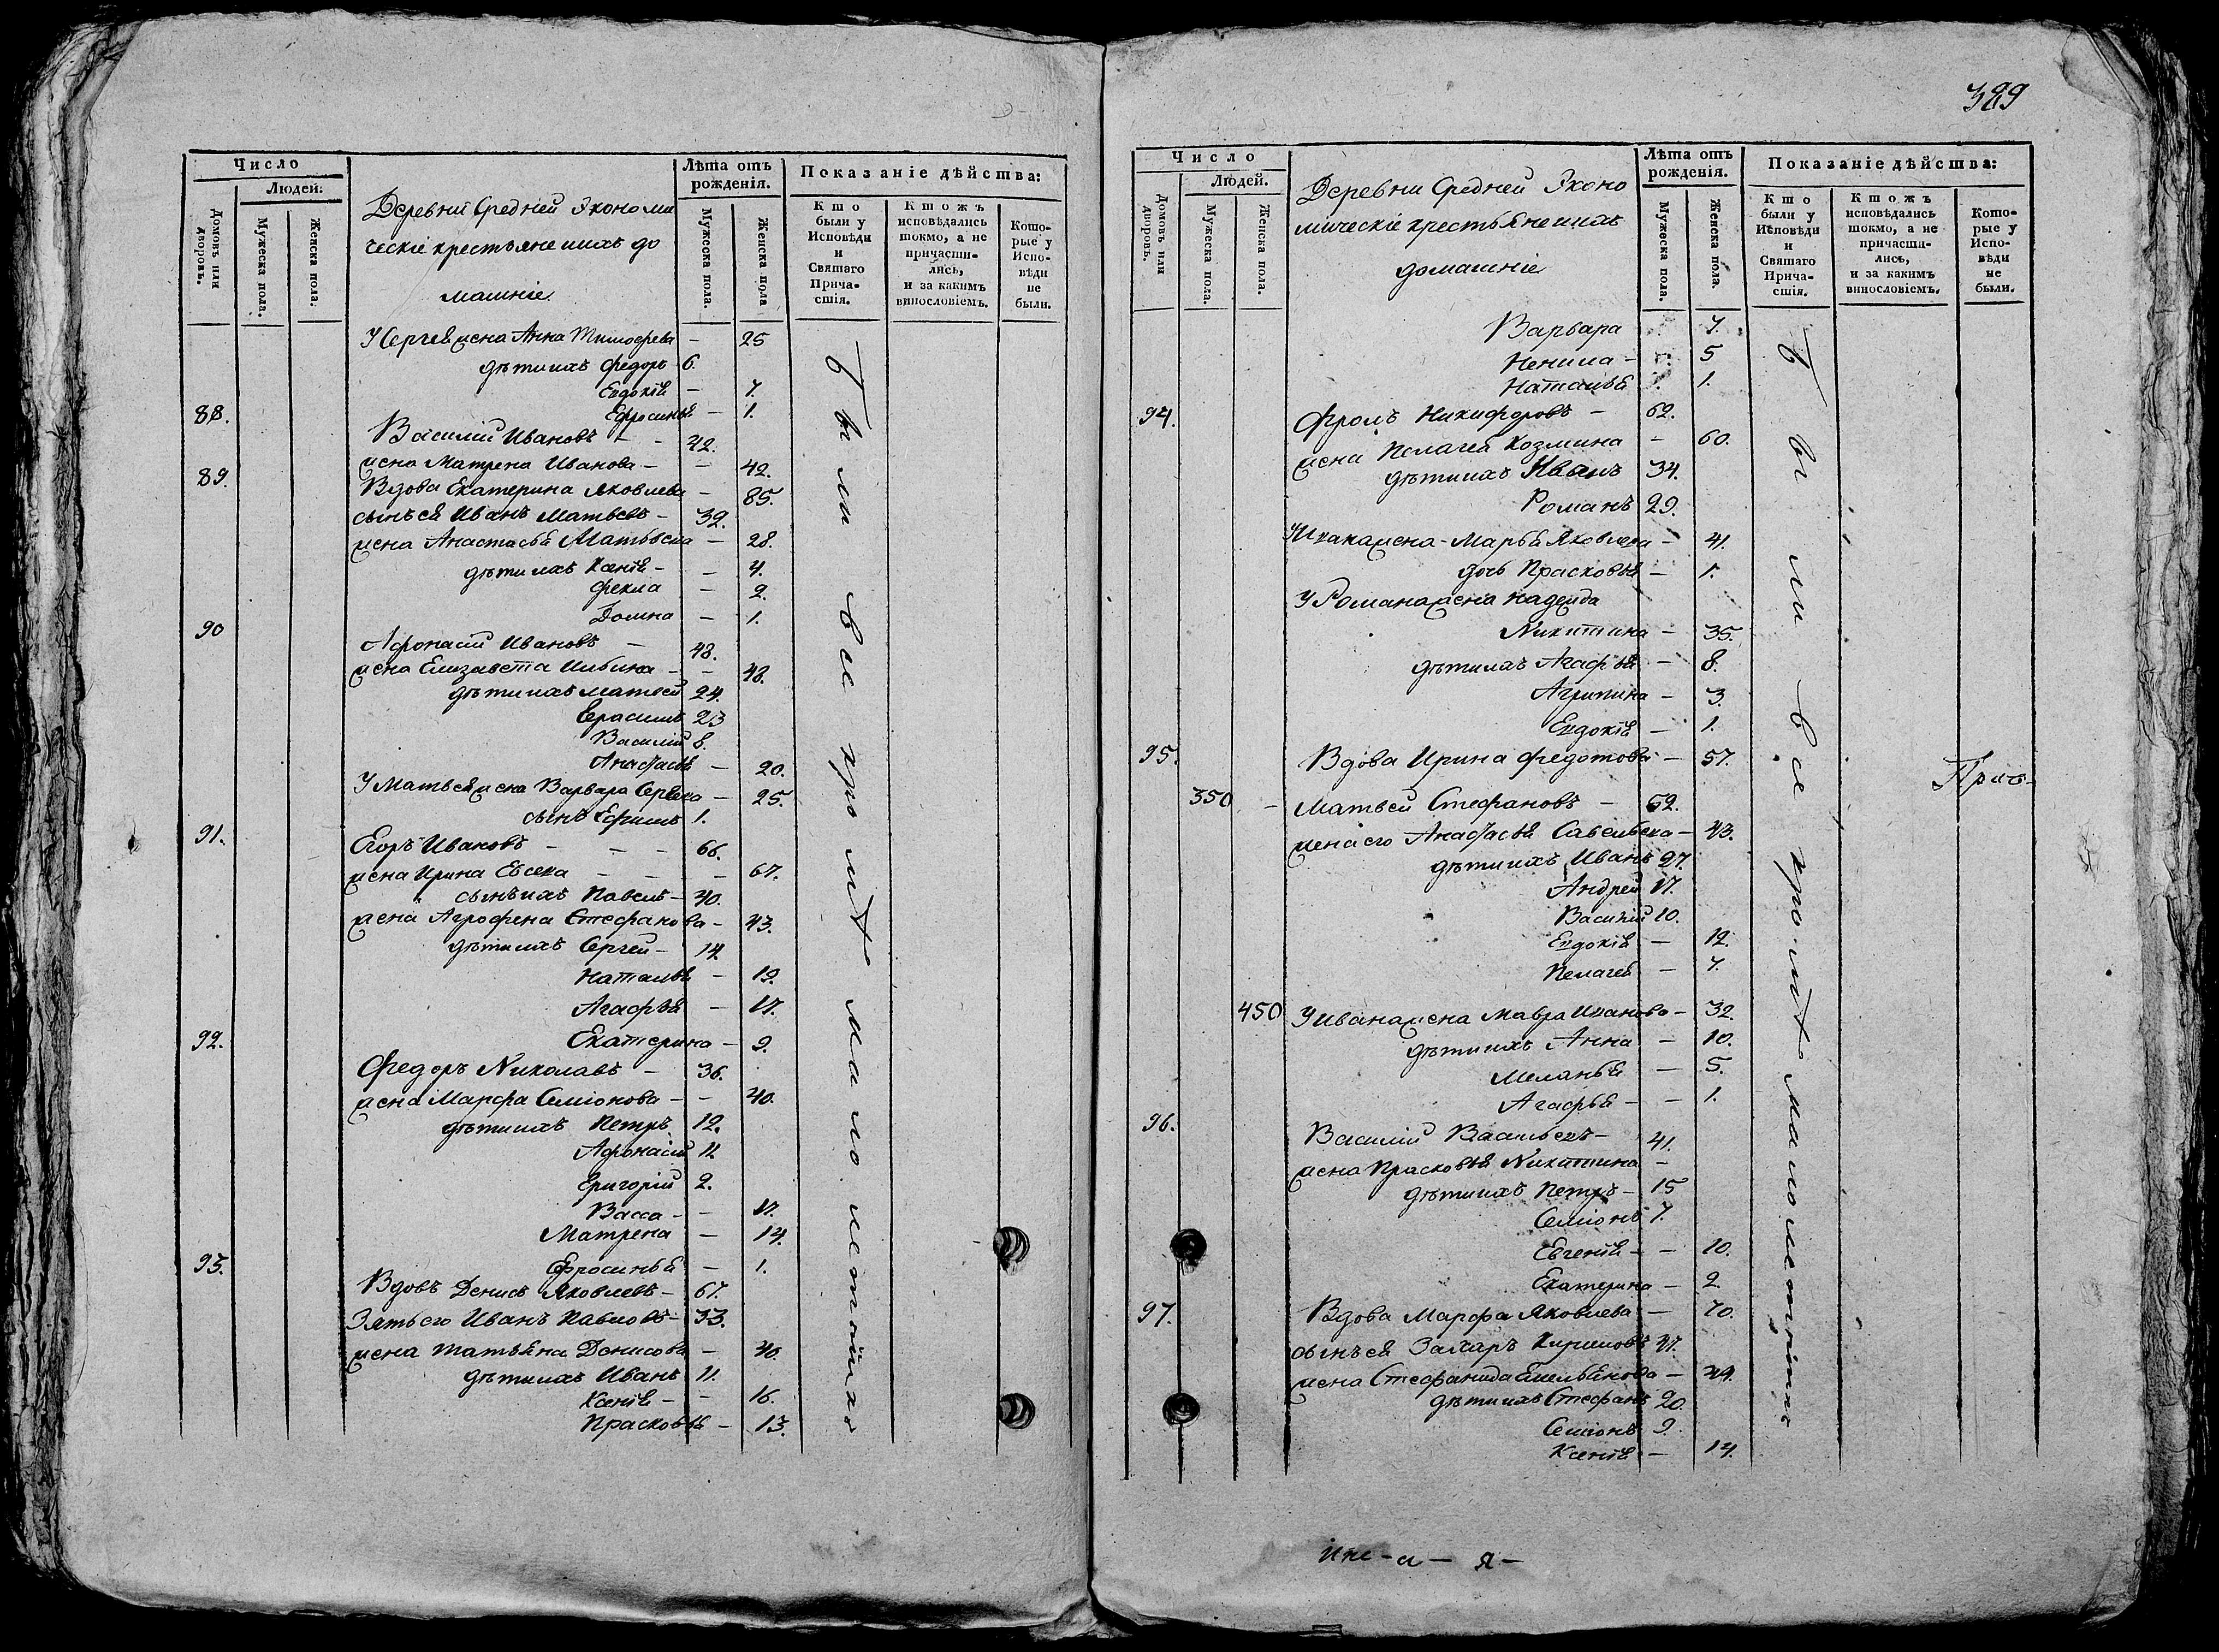 Число
Людей.
Домовъ или дворовъ.
Мужеска пола.
Женска пола.
Деревни Средней Экономи
ческіе крестьяне ихъ до
машніе
Лѣта отъ рожденія.
Мужеска пола.
Женска пола
Показаніе дѣйства:
Кто были у Исповѣди и Святаго Прича-стія.
Ктожъ исповѣдались токмо, а не причасти-лись, и за какимъ винословіемъ.
Кото-рые у Испо-вѣди не были.
У Сергея жена Анна Тимофеева - 25
дѣти ихъ Федоръ 6.
Евдокія - 7.
Ефросинья - 1.
88. Василий Ивановъ - - 42.
жена Матрена Иванова - - 42.
89. Вдова Екатерина Яковлева - 85.
сынъ ея Иванъ Матвеевъ - 39.
жена Анастасья Матвеева - 28.
дѣти ихъ Ксенія - - 4.
Фекла - 2.
Домна - 1.
90 Афонасий Ивановъ - 48.
жена Елизавета Ильина - - 48.
дѣти ихъ Матвей 24.
Герасимъ 23
Василий 8.
Анастасья - 20.
У Матвея жена Варвара Сергеева - 25.
сынъ Ефимъ 1.
91. Егоръ Ивановъ - - - 66.
жена Ирина Евсева - - - 67.
сынъ ихъ Павелъ - 40.
жена Агрофена Стефанова - 43.
дѣти ихъ Сергей - 14.
Наталья - 19.
Агафья - 17.
Екатерина - 9.
92. Федоръ Николаевъ - 36.
жена Марфа Семіонова - - 40.
дѣти ихъ Петръ 12.
Афонасий 11.
Григорий 2.
Васса - - 17.
Матрена - 14.
Ефросинья - 1.
93. Вдовъ Денисъ Яковлевъ - 67.
Зять его Иванъ Павловъ - 33.
жена Татьяна Денисова - 40.
дѣти ихъ Иванъ 11.
Ксенія - - 16.
Прасковья - 13.
Были все кромѣ малолетныхъ
389
Число
Людей.
Домовъ или дворовъ.
Мужеска пола.
Женска пола.
Деревни Средней Эконо
мическіе крестьяне ихъ
домашніе
Лѣта отъ рожденія.
Мужеска пола.
Женска пола.
Показаніе дѣйства:
Кто были у Исповѣди и Святаго Прича-стія.
Ктожъ исповѣдались токмо, а не причаста-лись, и за какимъ винословіемъ.
Кото-рые у Испо-вѣди не были.
Варвара 7.
Ненила - 5
Наталья 1.
94. Фролъ Никифоровъ - 62.
жена Пелагея Козмина - 60.
дѣти ихъ Иванъ 34.
Романъ 29.
У Ивана жена Марья Яковлева - 41.
дочь Прасковья - 1.
У Романа жена Надежда
Никитина - 35.
дѣти ихъ Агафья - 8.
Агрипина - 3.
Евдокія - 1.
95. Вдова Ирина Федотова - 57.
350 - Матвей Стефановъ - 52.
жена его Анастасья Савельева - 43.
дѣти ихъ Иванъ 27.
Андрей 17.
Василий 10.
Евдокія - 12.
Пелагея - 7.
450 У Ивана жена Мавра Иванова - 32.
дѣти ихъ Анна - 10.
Меланья - 5.
Агафья - - 1.
96. Василий Васильевъ - 41.
жена Прасковья Никитина -
дѣти ихъ Петръ - 15
Семіонъ 7.
Евгенія - - 10.
Екатерина - 2.
97. Вдова Марфа Яковлева - 70.
сынъ ея Захаръ Кириловъ 47.
жена Стефанида Емельянова - 44.
дѣти ихъ Стефанъ 20.
Семіонъ 9.
Ксенія - 14.
Были все кромѣ малолетнихъ